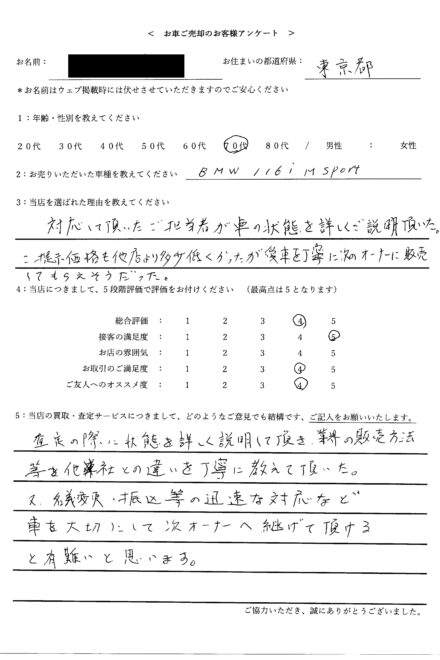 < お車ご売却のお客様アンケート >
お名前： お住まいの都道府県： 東京都
*お名前はウェブ掲載時には伏せさせていただきますのでご安心ください
1：年齢・性別を教えてください
20代 30代 40代 50代 60代 70代 80代 / 男性 ： 女性
2：お売りいただいた車種を教えてください BMW 116i M Sport
3：当店を選ばれた理由を教えてください
対応して頂いたご担当者が車の状態を詳しくご説明頂いた。
提示価格も他店より多少低くかったが愛車を丁寧に次のオーナーに販売
してもらえそうだった。
4：当店につきまして、5段階評価で評価をお付けください （最高点は5となります）
総合評価 ： 1 2 3 4 5
接客の満足度 ： 1 2 3 4 5
お店の雰囲気 ： 1 2 3 4 5
お取引のご満足度 ： 1 2 3 4 5
ご友人へのオススメ度 ： 1 2 3 4 5
5：当店の買取・査定サービスにつきまして、どのようなご意見でも結構です、ご記入をお願いいたします。
査定の際に状態を詳しく説明して頂き、業界の販売方法
等を他社との違いを丁寧に教えて頂いた。
又、名義変更・振込等の迅速な対応など
車を大切にして次オーナーへ継げて頂ける
と有難いと思います。
ご協力いただき、誠にありがとうございました。